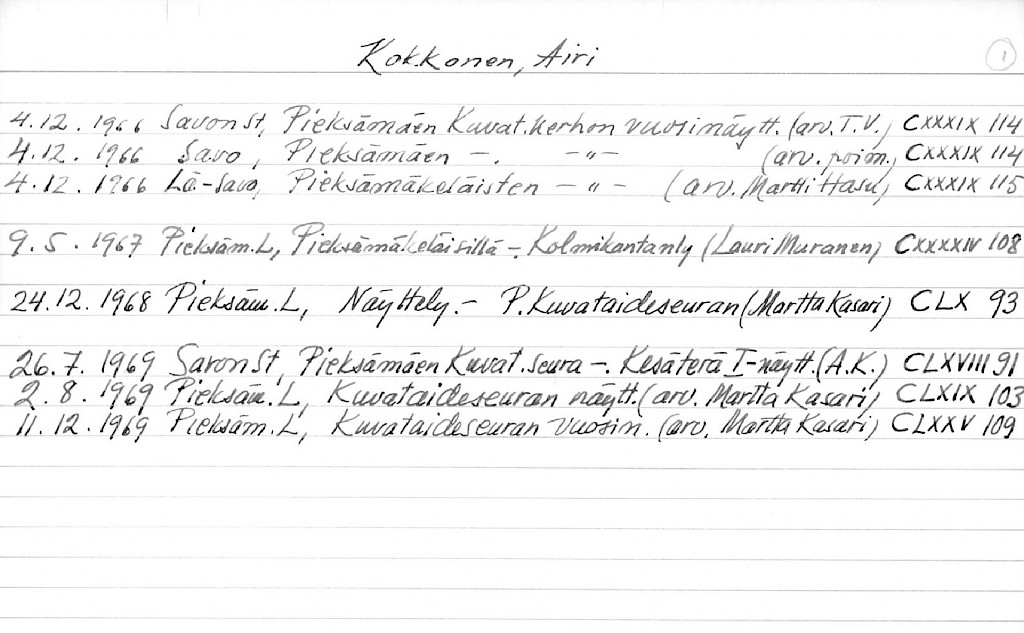 Kokkonen, Airi
1
4.12.1966 Savon St, Pieksämäen Kuvat.kerhon vuosinäytt. (arv. T.V.) CXXXIX 114
4.12.1966 Savo, Pieksämäen -. -"- (arv. poim.) CXXXIX 114
4.12.1966 Lä-Savo, Pieksämäkeläisten -"- (arv. Martti Hasu) CXXXIX 115
9.5.1967 Pieksäm.L, Pieksämäkeläisillä -. Kolmikantanly (Lauri Muranen) CXXXXIV 108
24.12.1968 Pieksäm.L, Näyttely.- P.Kuvataideseuran (Martta Kasari) CLX 93
26.7.1969 Savon St, Pieksämäen Kuvat.seura -. Kesäterä I-näytt. (A.K.) CLXVIII 91
2.8.1969 Pieksäm.L, Kuvataideseuran näytt. (arv. Martta Kasari) CLXIX 103
11.12.1969 Pieksäm.L, Kuvataideseuran vuosin. (arv. Martta Kasari) CLXXV 109